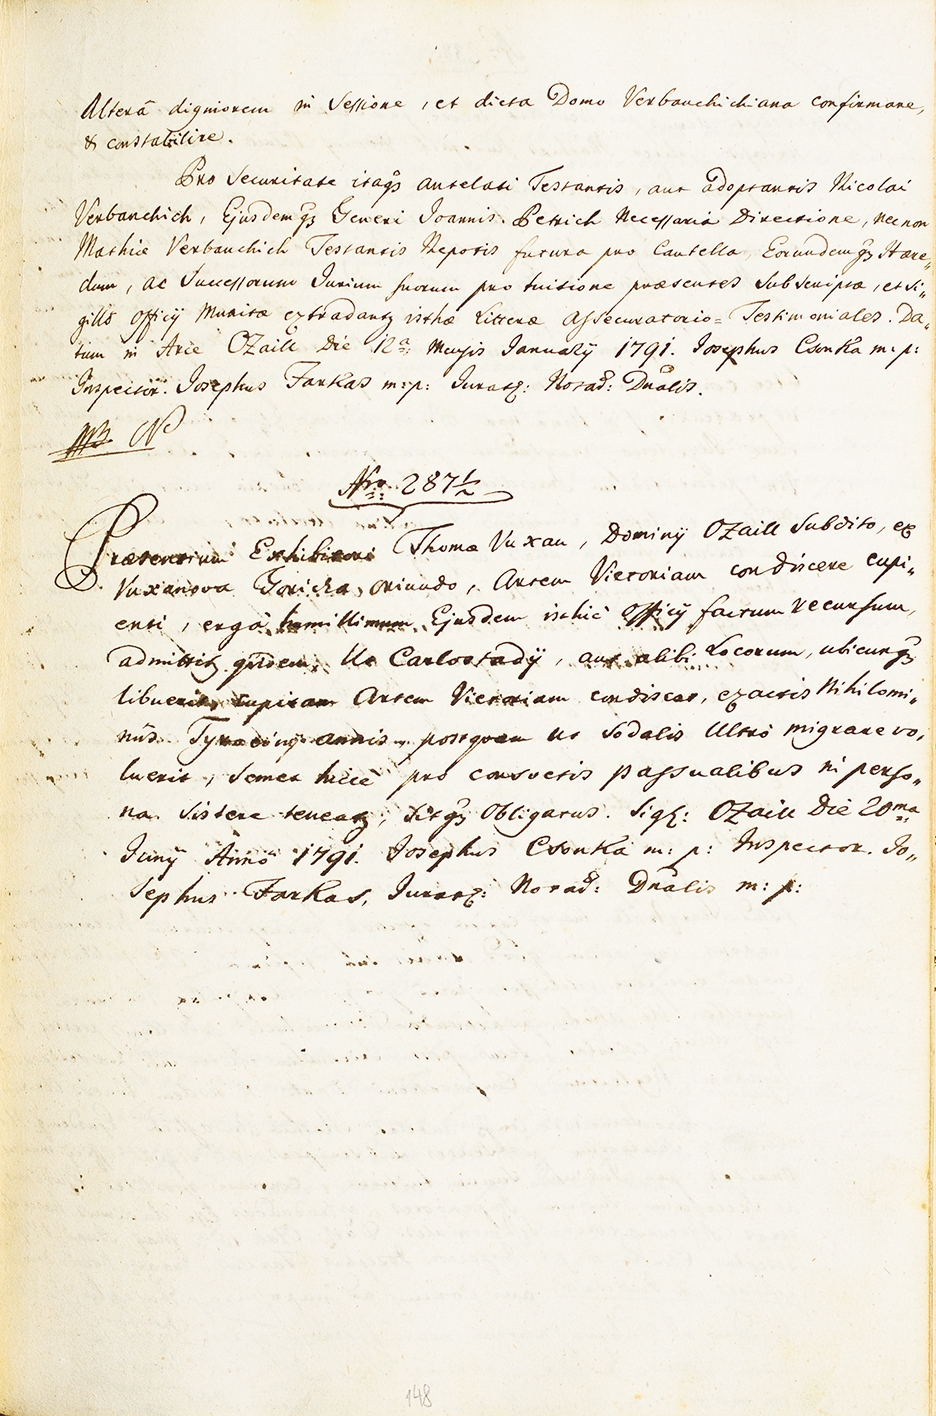 Alterâ digniorem in Sessione, et dicta Domo Verbanchichiana confirmare,
& constabilire.
Pro Securitate itaqꝫ antelati Testantis, aut adoptantis Nicolai
Verbanchich, Ejusdemqꝫ Generi Joannis Petrich Necessaria Directione, nec non
Mathiæ Verbanchich Testantis Nepotis futura pro Cautella, Eorundemqꝫ Hære„
dum, ac Successorum Jurium suorum pro tuitione præsentes Subscriptæ, et Si„
gillô Officÿ Munitæ extradantꝫ isthæ Litteræ Assecuratorio= Testimoniales. Da„
tum in Arce OZaill Die 12ª Mensis Januarÿ 1791. Josephus Csonka m: p:
Inspector. Josephus Farkas m: p: Juratꝫ: Notaꝫ: Dnalis.
NB
Nro: 287½
Præsentium Exhibitori Thomæ Vuxan, Dominÿ OZaill Subdito, ex
Vuxanova Goricza oriundo, Artem Vietoriam condiscere cupi„
enti, ergô humillimum Ejusdem isthic Officÿ factum recursum,
admittitꝫ quidem; Ut Carlostadÿ, aut alibi Locorum, ubicunqꝫ
libuerit, cupitam Artem Vietoriam condiscat, exactis Nihilomi„
nùs Tyrocinÿ annis, postquam ut Sodalis Ultrô migrare vo„
luerit, semet hicce pro consvetis passualibus in perso„
na sistere teneatꝫ, sitqꝫ Obligatus. Sigl: OZaill Die 20ma
Junÿ Annô 1791. Josephus Csonka m: p: Inspector. Jo„
sephus Farkas, Juratꝫ: Notaꝫ: Dnalis m: p:
148